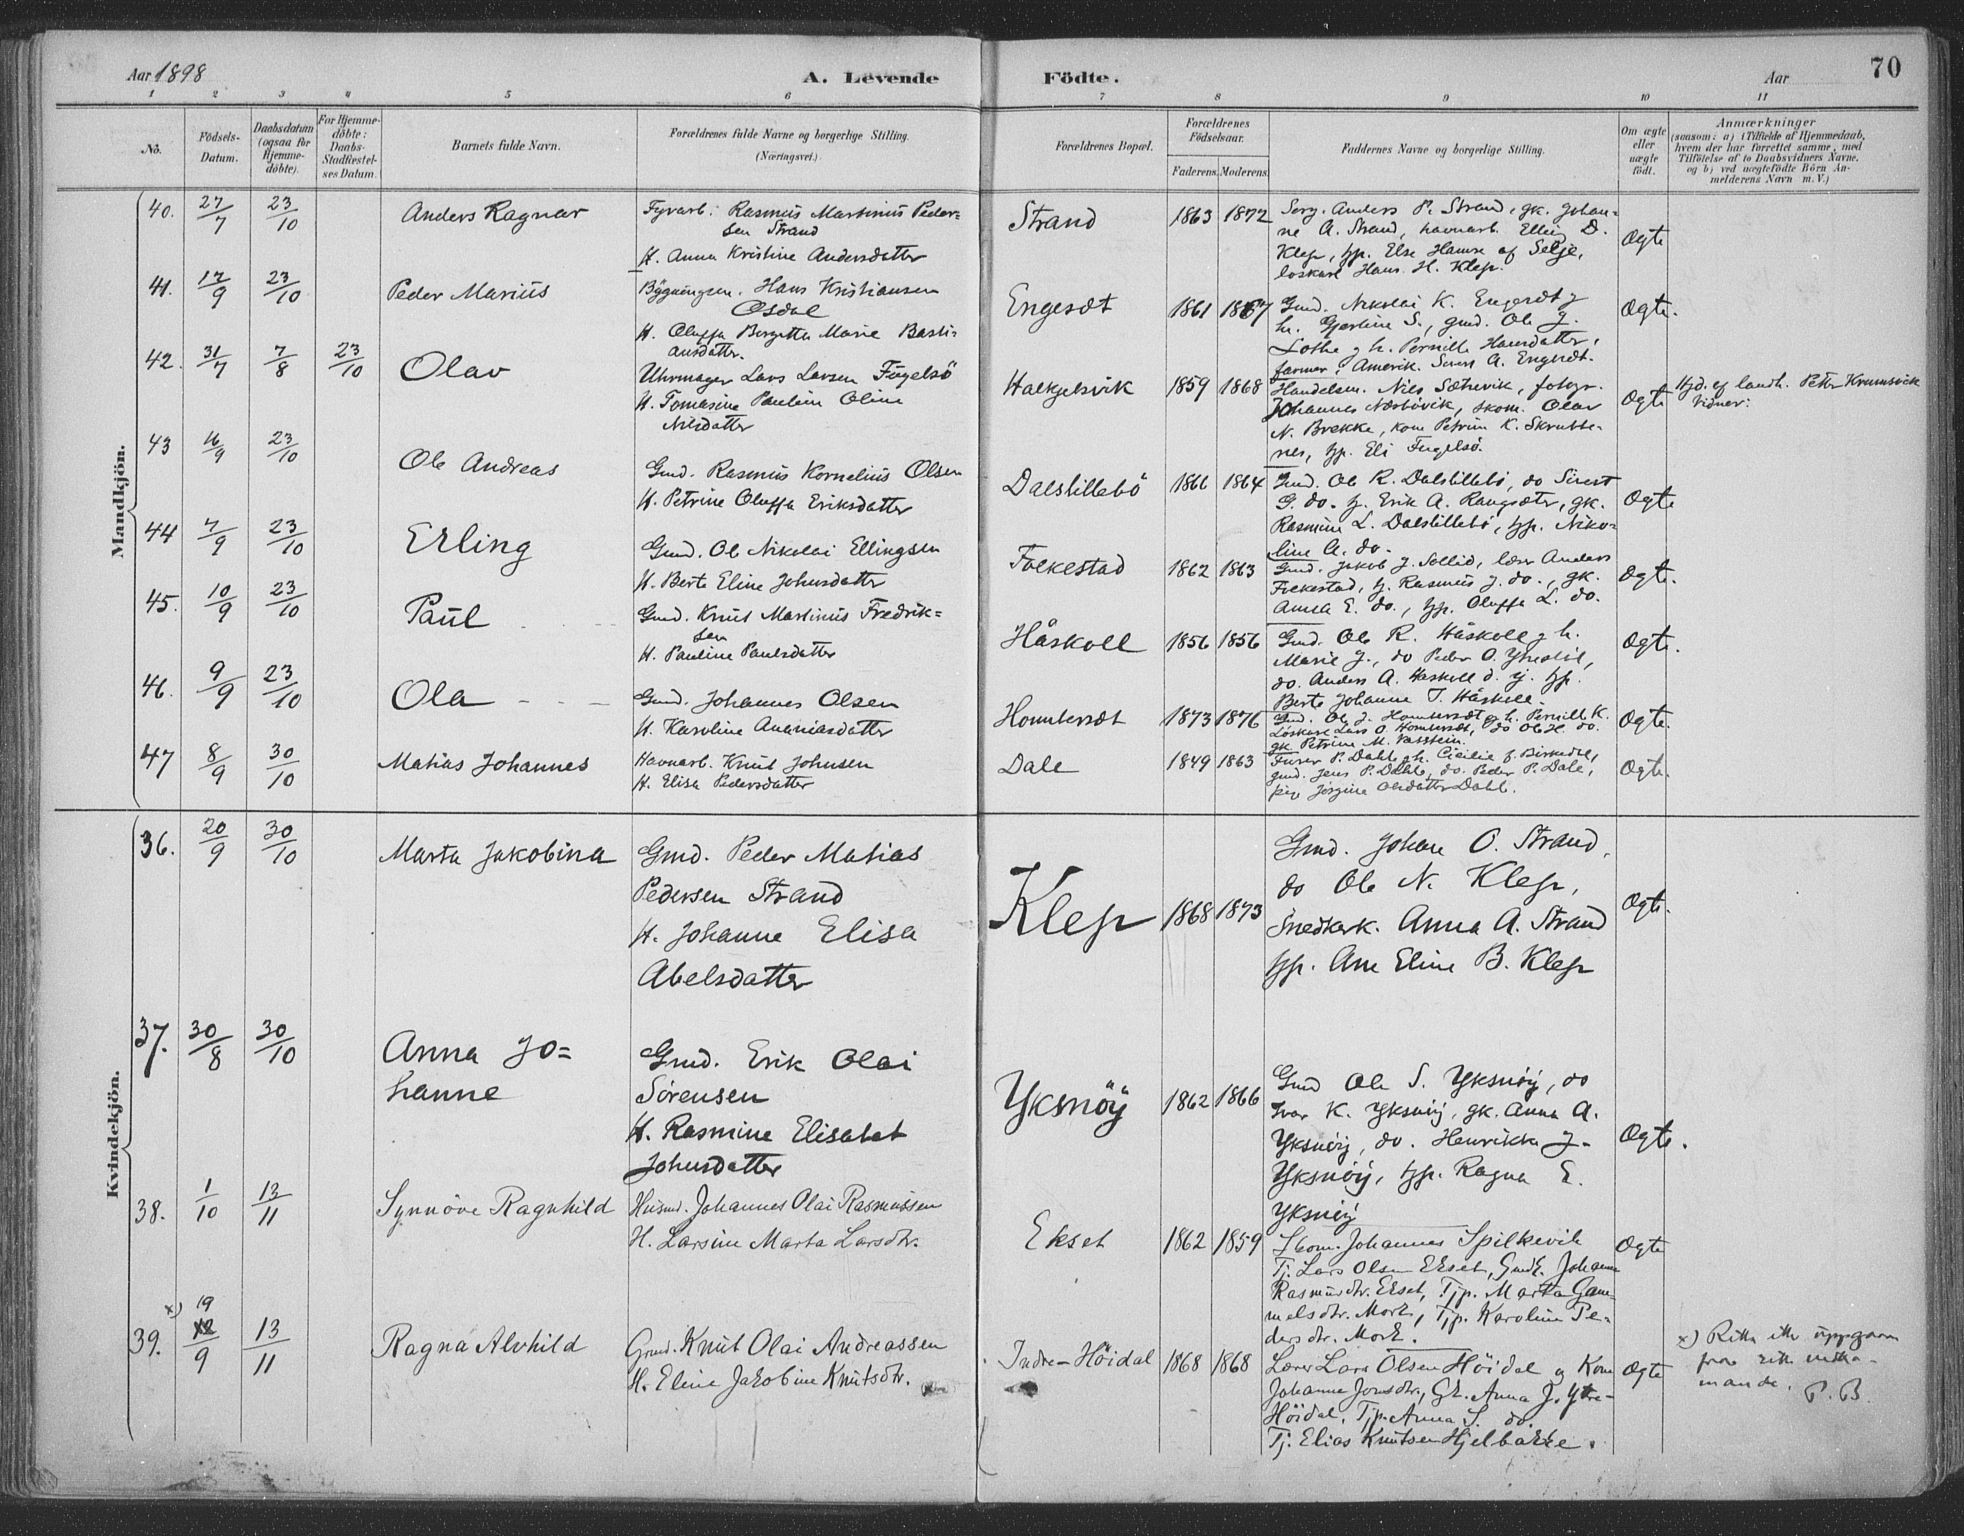 Aar 1898
A. Levende
Födte.
Aar
70
1 2 3 4 5 6 7 8 9 10 11
No.
Födsels-
Datum.
Daabsdatum
(ogsaa för
Hjemme-
döbte).
For Hjemme-
döbte:
Daabs-
Stadfæstel-
ses Datum.
Barnets fulde Navn.
Forældrenes fulde Navne og borgerlige Stilling.
(Næringsvei).
Forældrenes Bopæl.
Forældrenes
Födselsaar.
Faderens. Moderens.
Faddernes Navne og borgerlige Stilling.
Om ægte
eller
uægte
födt.
Anmærkninger
(saasom: a) i Tilfælde af Hjemmedaab,
hvem der har forrettet samme, med
Tilföielse af to Daabsvidners Navne.
og b) ved uægtefödte Börn An-
melderens Navn m. V.)
Mandkjön.
40. 27/7 23/10 Anders Ragnar
Fyrarb. Rasmus Martinus Peder-
sen Strand
H. Anna Kristine Andersdatter
Strand 1863 1872
Serg. Anders P. Strand, gk. Johan-
ne A. Strand, havnarb. Elling D.
Klep, hp. Else Hanse af Selje,
loskarl Hans H. Klep.
Ogte
41. 17/9 23/10 Peder Marius
Bygningsm. Hans Kristiansen
Osdal
H. Oluffa Bergitta Marie Basti-
ansdatter.
Engesæt 1861 1867
Gmd. Nikolai K. Engesæt og
h. Gjertine S., gmd. Ole J.
Lothe og h. Pernille Hansdatter,
farmer, Amerik. Sivert A. Engesæt.
Ogte.
42. 31/7 7/8 23/10 Olav
Uhrmager Lars Larsen Fugelsö
H. Tomasine Pauline Oline
Nilsdatter
Halkjelsvik 1859 1868
Handelsm. Nils Sætrevik, fotogr.
Johannes Næsbövik, skom. Olav
N. Brekke, kone Petrine K. Skrubbe-
nes, hp. Eli Fugelsö.
Ogte
Hjd. af landh. Peter Krumsvik
Vidner:
43 16/9 23/10 Ole Andreas
Gmd. Rasmus Kornelius Olsen
H. Petrine Oluffa Eriksdatter
Dalstillebö 1866 1864
Gmd. Ole R. Dalstillebö, do Sivert
G. do. hp. Erik A. Rangsæter, gk.
Rasmine L. Dalstillebö, hp. Niko-
line A. do.
Ogte
44 7/9 23/10 Erling
Gmd. Ole Nikolai Ellingsen
H. Berte Eline Johnsdatter
Folkestad 1862 1863
Gmd. Jakob J. Sollid, lærer Anders
Folkestad, hp. Rasmus J. do., gk.
Anna E. do., hp. Oluffa L. do.
Ogte.
45. 10/9 23/10 Paul
Gmd. Knut Martinus Fredrik-
sen
H. Pauline Paulsdatter
Håskoll 1856 1856
Gmd. Ole R. Håskoll og h.
Marie J., do Peder O. Yksetlid,
do. Anders A. Haskoll d. y. hp.
Berte Johanne T. Håskoll.
Ogte.
46. 9/9 23/10 Ola
Gmd. Johannes Olsen
H. Karoline Ananiasdatter
Homberset 1873 1876
Gmd. Ole J. Homberset og h. Pernille K.
Loskarl Lars O. Homberset, do Ole H. do.
gk. Petrine M. Vasstein.
Ogte.
47 8/9 30/10 Matias Johannes
Havnarb. Knut Johnsen
H. Elisa Pedersdatter
Dale 1849 1863
Furer P. Dahl og h. Cicilie f. Birkedal,
gmd. Jens P. Dahle, do. Peder P. Dale,
pige Jörgine Olsdatter Dahl.
Ogte.
Kvindekjön.
36. 20/9 30/10 Marta Jakobina
Gmd. Peder Matias
Pedersen Strand
H. Johanne Elisa
Abelsdatter
Klep 1868 1873
Gmd. Johan O. Strand,
do Ole N. Klep,
Snedkerk. Anna A. Strand
hp. Ane Eline B. Klep
Ogte.
37. 30/8 30/10 Anna Jo-
hanne
Gmd. Erik Olai
Sörensen
H. Rasmine Elisabet
Johnsdatter
Yksnöy 1862 1866
Gmd Ole S. Yksnöy, do
Ivar K. Yksnöy, gk. Anna A.
Yksnöy, do. Henrikke J.
Yksnöy, hp. Ragna E.
Yksnöy
Ogte.
38. 1/10 13/11 Synnöve Ragnhild
Husmd. Johannes Olai Rasmussen
H. Larsine Marta Larsdtr.
Ekset 1862 1859
Skom. Johannes Spilkevik
Tj. Lars Olsen Ekset, Gmdk. Johanne
Rasmusdtr. Ekset, Tjp. Marta Gam-
melsdtr. Mork, Tjp. Karoline Pe-
dersdtr. Mork.
Ogte
39. x) 19 12/9 13/11 Ragna Alvhild
Grmd. Knut Olai Andreassen
H. Eline Jakobine Knutsdtr.
Indre-Höidal 1868 1868
Lærer Lars Olsen Höidal og Kone
Johanne Jonsdtr., Gk. Anna J. Ytre-
Höidal, Tjp. Anna S. do.
Tj. Elias Knutsen Hjelbakke.
Ogte
x) Retta etter uppgaava
fraa
mande. P. B.